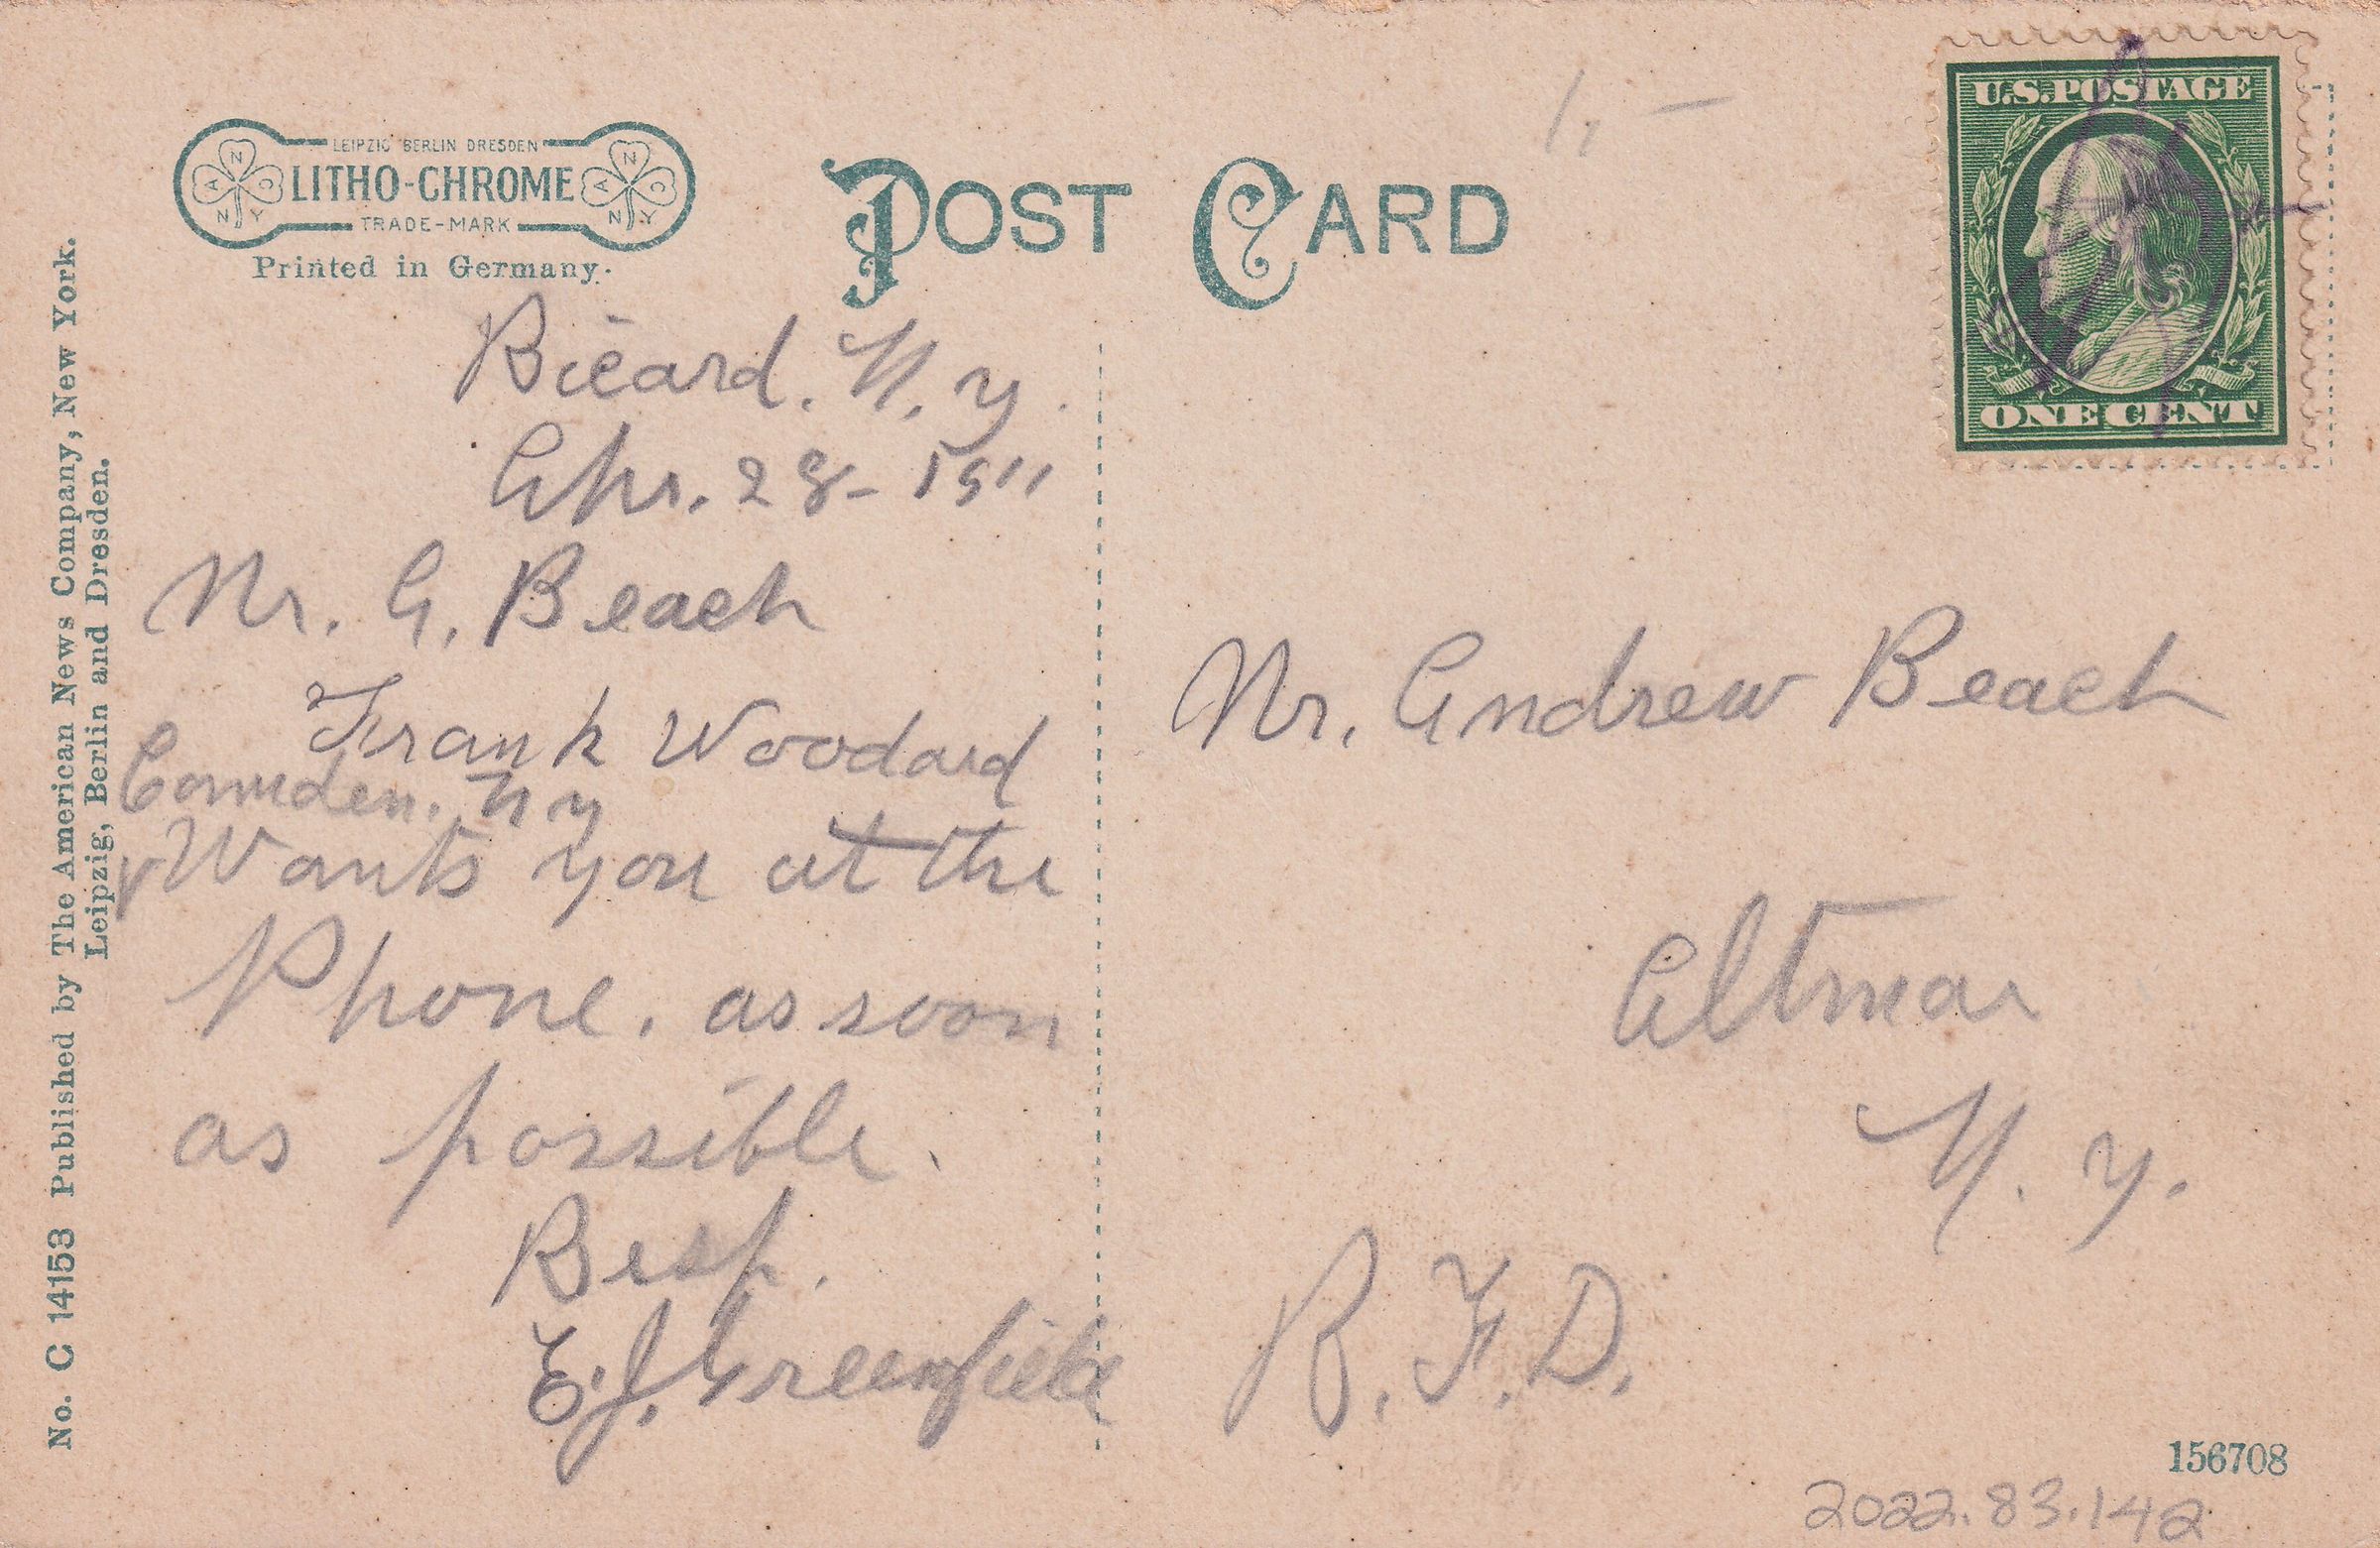 LEIPZIG BERLIN DRESDEN
LITHO-CHROME
TRADE-MARK
Printed in Germany.
POST CARD
U.S. POSTAGE
ONE CENT
Ricard. N. Y.
Apr. 28- 1911
Mr. A. Beach
Frank Woodard
Camden. N Y
Wants you at the
Phone. as soon
as possible.
Resp.
E. J. Greenfield
Mr. Andrew Beach
Altmar
N. Y.
R. F. D.
156708
2022.83.142
No. C 14153 Published by The American News Company, New York.
Leipzig, Berlin and Dresden.